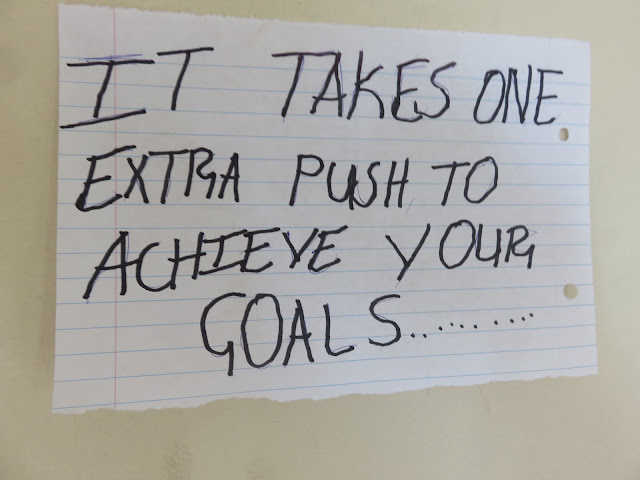 IT TAKES ONE
EXTRA PUSH TO
ACHIEVE YOUR
GOALS..........